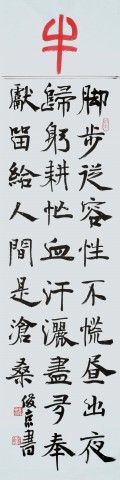 牛
脚步從容性不慌昼出夜
歸躬耕忙血汗灑盡多奉
獻留給人間是滄桑
俊京書